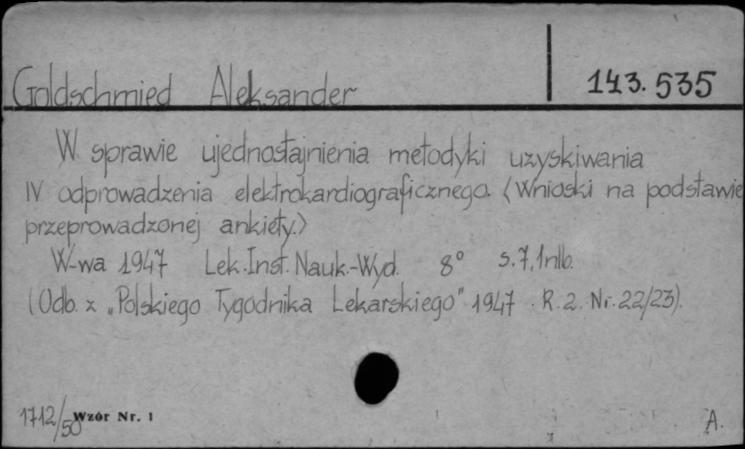 Goldschmied Aleksander 143.535
W sprawie ujednostajnienia metodyki uzyskiwania
IV odprowadzenia elektrokardiograficznego. <Wnioski na podstawie
przeprowadzonej ankiety.>
W-wa 1947 Lek. Inst. Nauk.-Wyd. 8° s. 7, 1 nlb.
(Odb. z „Polskiego Tygodnika Lekarskiego" 1947. R. 2. Nr. 22/23).
1712/50 Wzór Nr. 1 A.